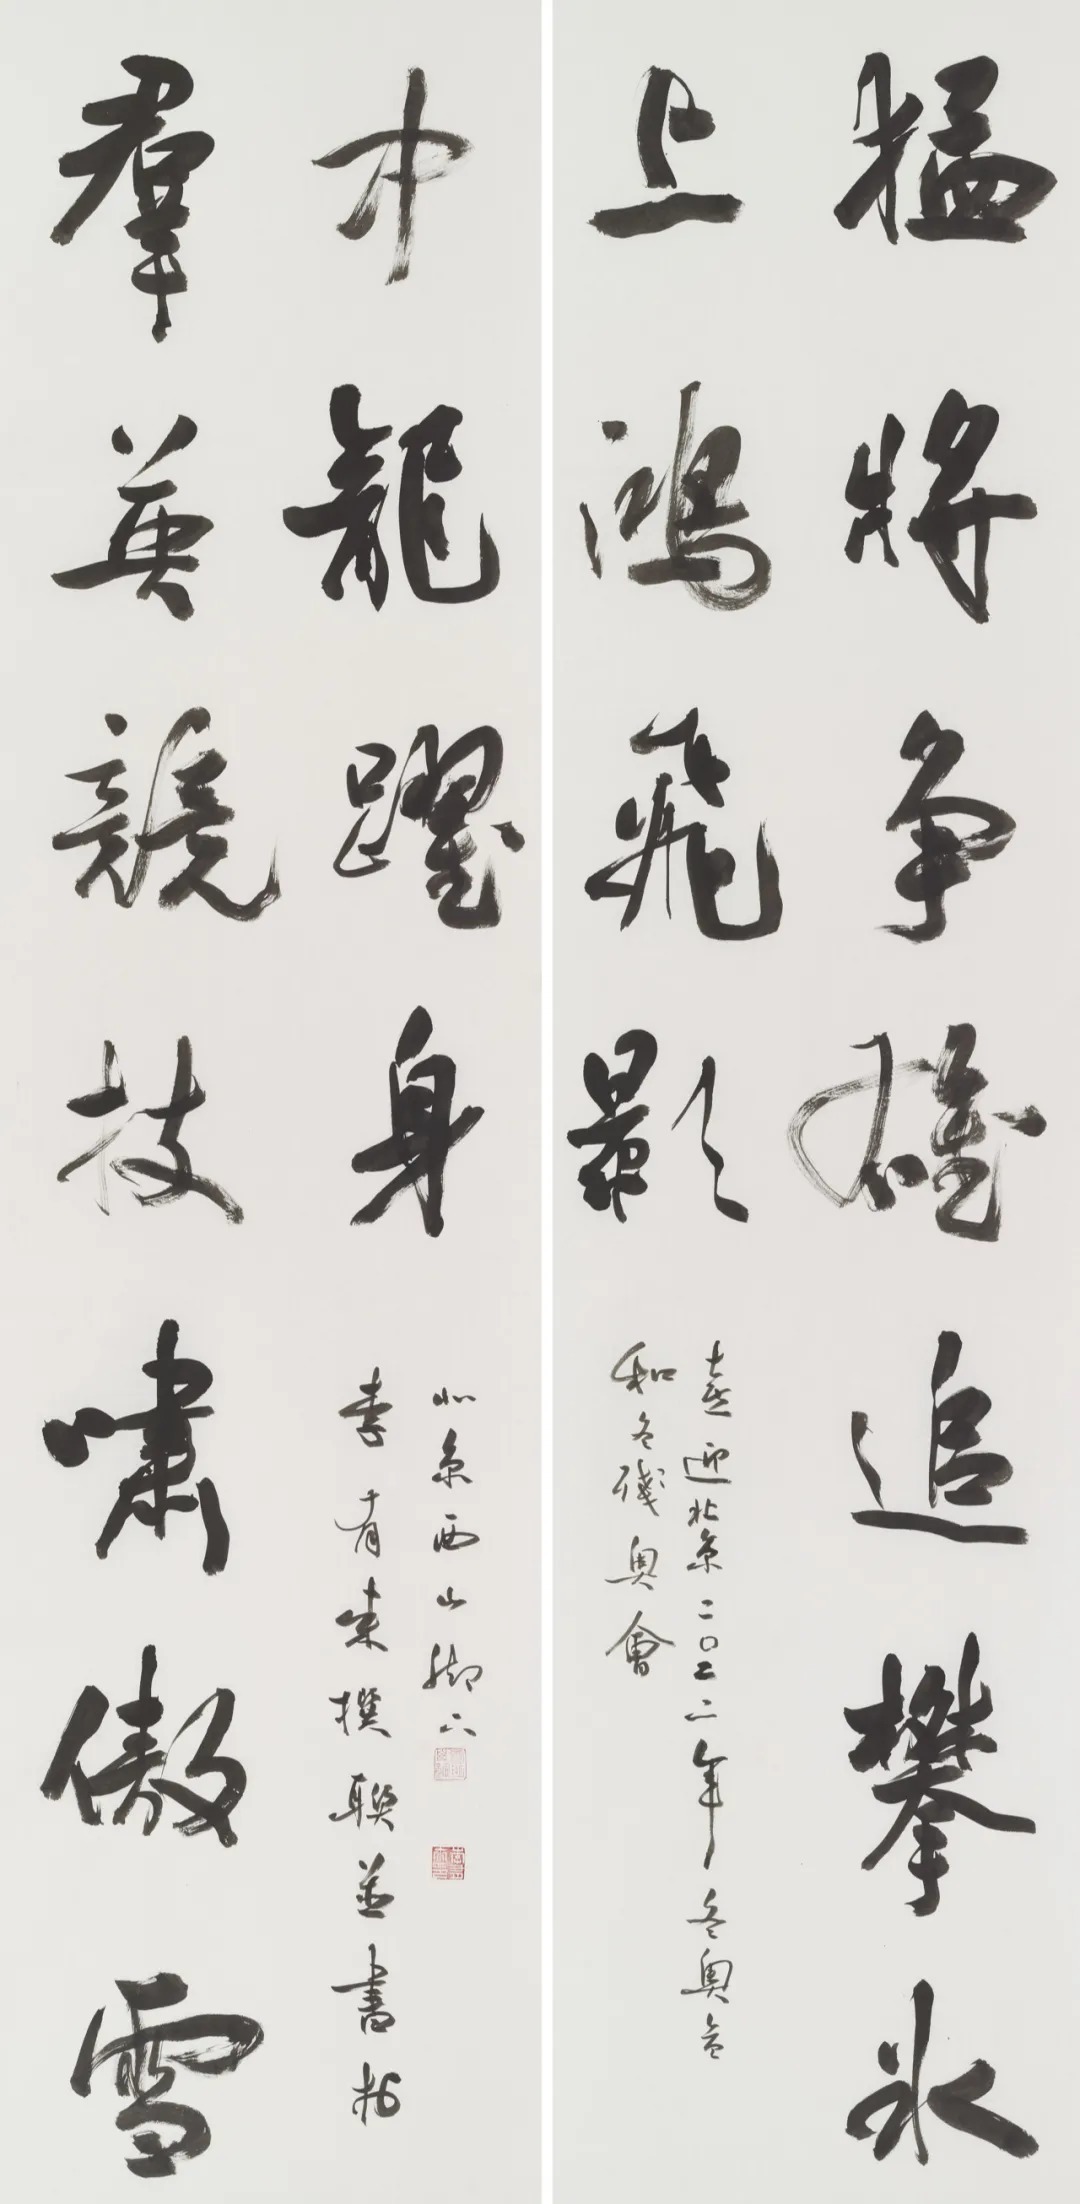 猛將争雄追攀冰
上鴻飛影
喜迎北京二〇二二年冬奥会
和冬殘奥會
羣英競技嘯傲雪
中龍躍身
李有来撰聯並書於
北京西山脚下